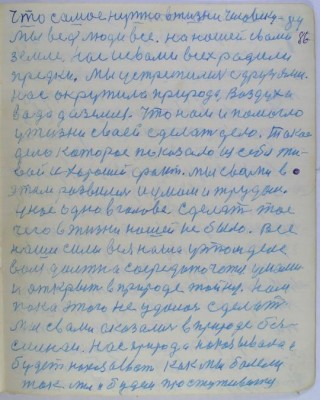 Что самое нужно в жизни человеку
Мы ведь люди все. на нашей с вами 86
земле, нас с вами всех радили
предки. Мы устремились с друзьями.
нас окружила природа, воздуха
вада да земля. Что нам и помогло
у жизни сваей сделать дело. Такое
дело которое показало из себя жи-
вой и хороший факт. мы с вами в
этом развились и умом и трудом.
у нас одно в голове сделать тое
чего в жизни нашей не было. Все
наши силы вся наша у этом деле
воля должна
и открыть в природе тайну. Нам
пока этого не удалось сделать
мы с вами аказались в природе бес-
сильны. Нас природа наказывала и
будет наказывать как мы болели
так мы и будим простуживать